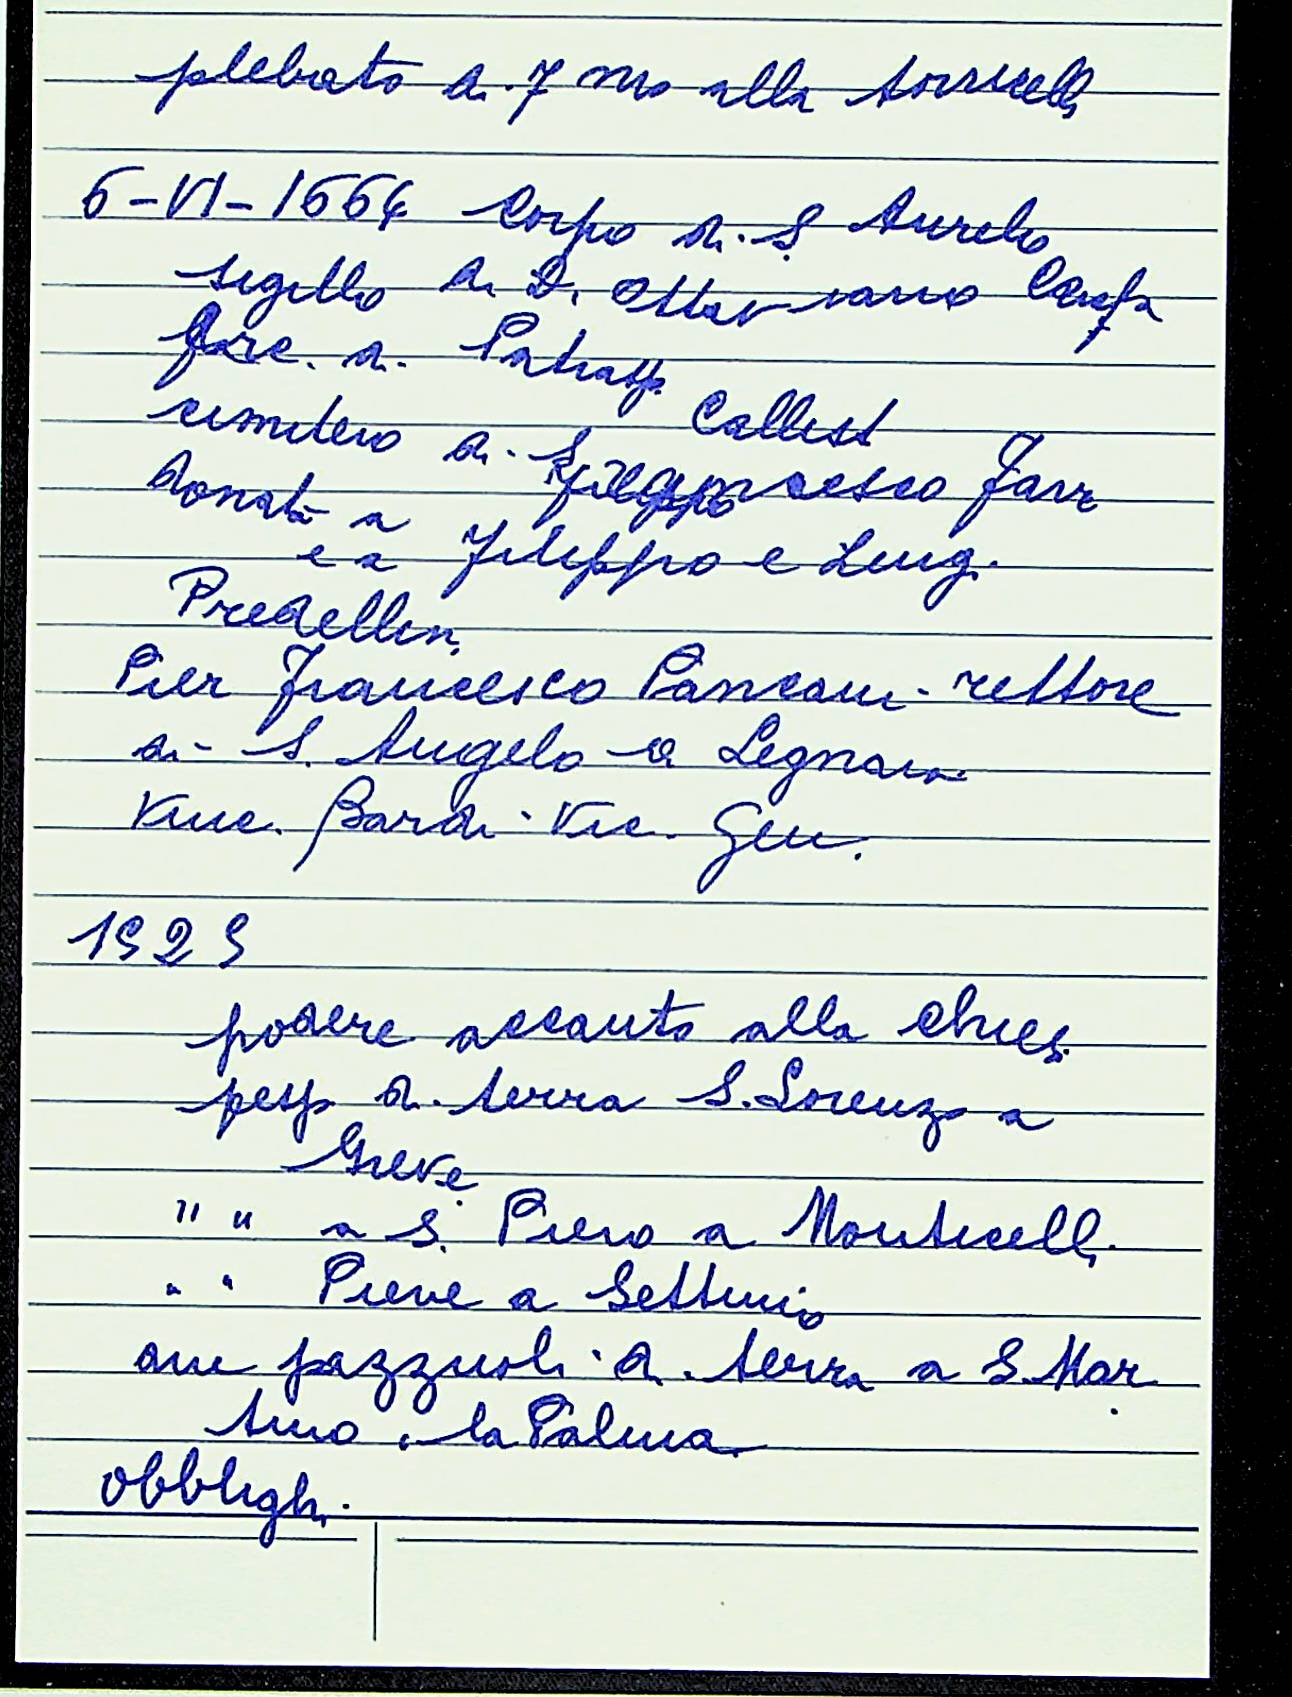 plebato di 7mo alla torricell
6-VI-1664 Corpo di S Aurelio
sigillo di D. Ottav iano Carafa
Arc. di Patrasso
Callist
cimitero di S.
donato a Francesco Farr
e a Filippo e Luigi
Predellini
Pier Francesco Panzani rettore
di S. Angelo a Legnaia
Vinc. Bardi Vic. Gen.
1929
podere accanto alla chiesa
pezzo di terra S. Lorenzo a
Greve
" " a S. Piero a Monticelli
" " Pieve a Settimo
due pezzuoli di terra a S. Mar
tino la Palma
obblighi